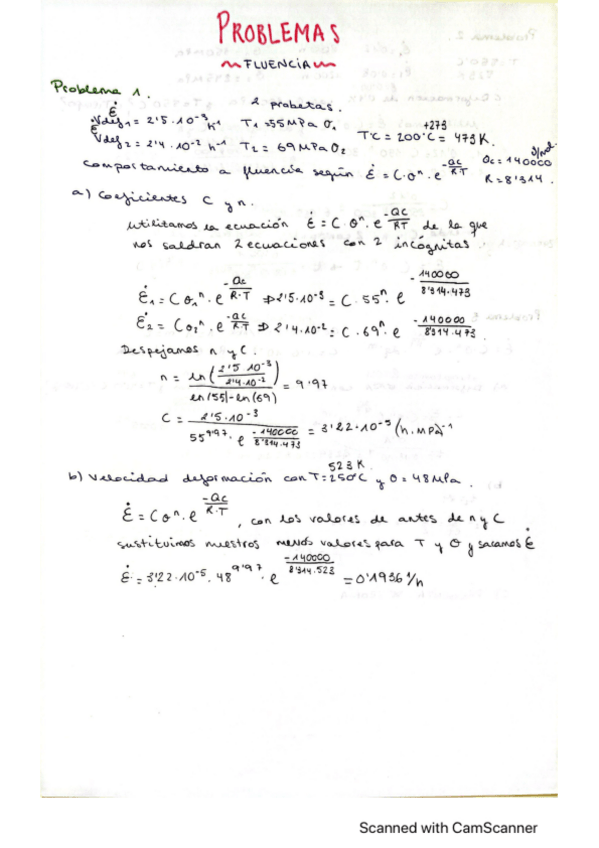 PROBLEMAS
FLUENCIA
Problema 1.
2 probetas.
Ė Vdef₁ = 2'5·10⁻³ h⁻¹ T₁ = 55 MPa σ₁
Ė Vdef₂ = 2'4·10⁻² h⁻¹ T₂ = 69 MPa σ₂
T°C = 200°C +273 = 473 K.
Comportamiento a fluencia según Ė = C·σⁿ·e^(-Qc/RT) Qc = 140000 J/mol
R = 8'314.
a) Coeficientes C y n.
Utilitamos la ecuación Ė = C·σⁿ·e^(-Qc/RT) de la que
nos saldran 2 ecuaciones con 2 incógnitas.
Ė₁ = Cσ₁ⁿ·e^(-Qc/R·T) ⇒ 2'5·10⁻³ = C·55ⁿ·e^(-140000/8'314·473)
Ė₂ = Cσ₂ⁿ·e^(-Qc/RT) ⇒ 2'4·10⁻² = C·69ⁿ·e^(-140000/8'314·473)
Despejamos n y C.
n = ln(2'5 10⁻³/2'4·10⁻²)/ln(55)-ln(69) = 9'97
C = 2'5·10⁻³/55^9'97·e^(-140000/8'314·473) = 3'22·10⁻⁵ (h·MPa)⁻¹
b) Velocidad deformación con T = 250°C 523 K. y σ = 48 MPa.
Ė = Cσⁿ·e^(-Qc/R·T), con los valores de antes de n y C
sustituimos nuestros nuevos valores para T y σ y sacamos Ė
Ė = 3'22·10⁻⁵·48^9'97·e^(-140000/8'314·523) = 0'1936 1/h
Scanned with CamScanner